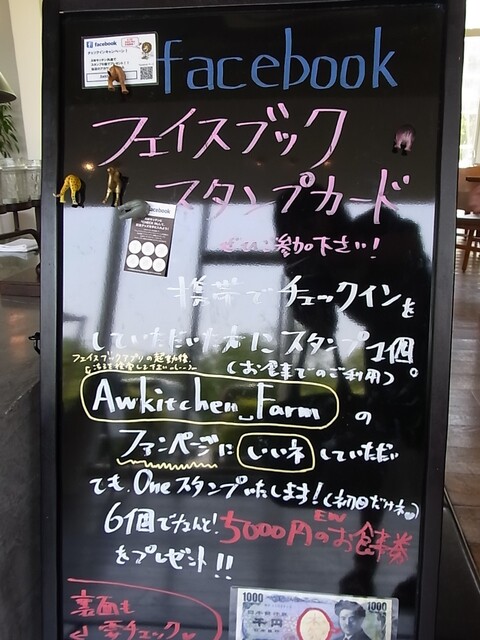 facebook
facebook
フェイスブック
スタンプカード
facebook
ぜひご参加下さい!
携帯でチェックインを
していただいた方にスタンプ1個。
フェイスブックアプリの起動後、
(お食事でのご利用)
Awkitchen_Farm の
ファンページに いいネ していただい
ても、Oneスタンプいたします!(初回だけネ)
6個でなんと! 5000円のお食事券
をプレゼント!!
裏面も
要チェック
1000 1000
日本銀行券
千円